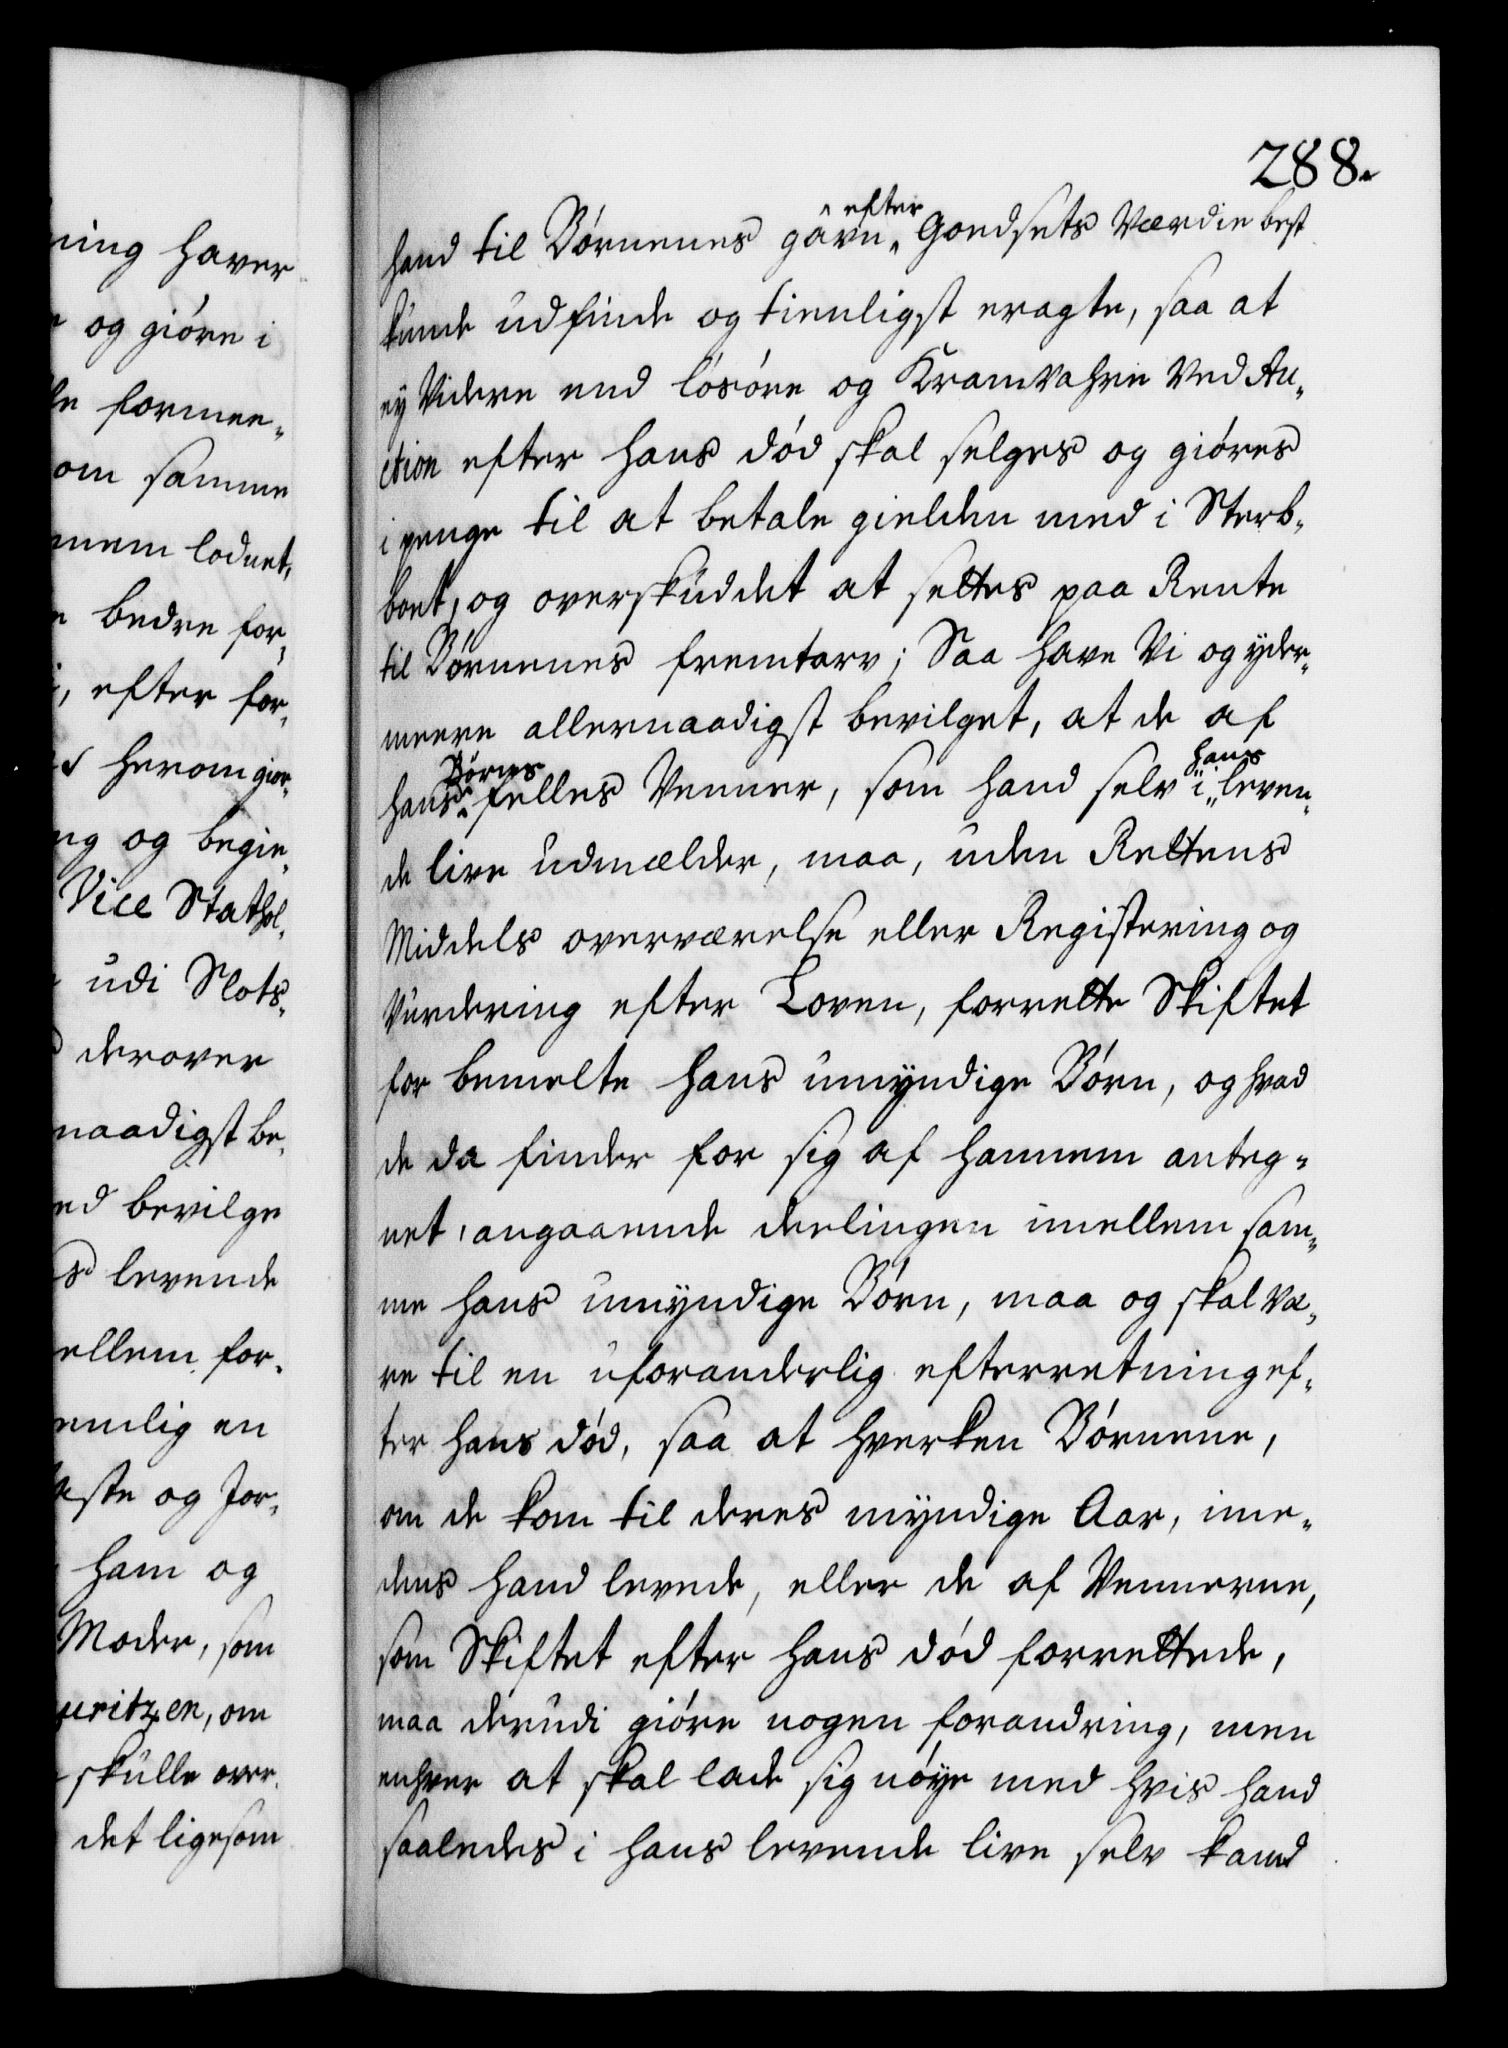 ning haver
og giöre i
le formee-
om samme
mem lodnet,
bedre for-
i, efter for-
d herom gior-
ng og begie-
Vice Stathol-
udi Slots-
derover
naadigst be-
ed bevilge
s levende
ellem for-
nemlig en
aste og Jor-
ham og
Moder, som
uritzen, om
skulle over-
det ligesom
288.
efter
hand til Börnenes gavn Goedsets Værdie best
kunde udfinde og tienligst eragte, saa at
ey Videre end lösöre og Kramvahre Ved Au-
ction efter hans död skal selges og giöres
i penge til at betale gielden med i Sterb-
boet, og overskuddet at settes paa Rente
til Börnenes fremtarv; Saa have Vi og yder-
meere allernaadigst bevilget, at de af
Börnes hans
hans felles Venner, som hand selv i leven-
de live udmælder, maa, uden Rettens
Middels overværelse eller Registering og
Vurdering efter Loven, forrette Skiftet
for bemelte hans umyndige Börn, og hvad
de da finder for sig af hannem anteg-
net, angaaende deelingen imellem sam-
me hans umyndige Börn, maa og skal væ-
re til en uforanderlig efterretning ef-
ter hans död, saa at hverken Börnene,
om de kom til deres myndige Aar, ime-
dens hand levede, eller de af Vennerne,
som Skiftet efter hans död forrettede,
maa derudi giöre nogen forandring, men
enhver at skal lade sig nöye med hvis hand
saaledes i hans levende live selv kand